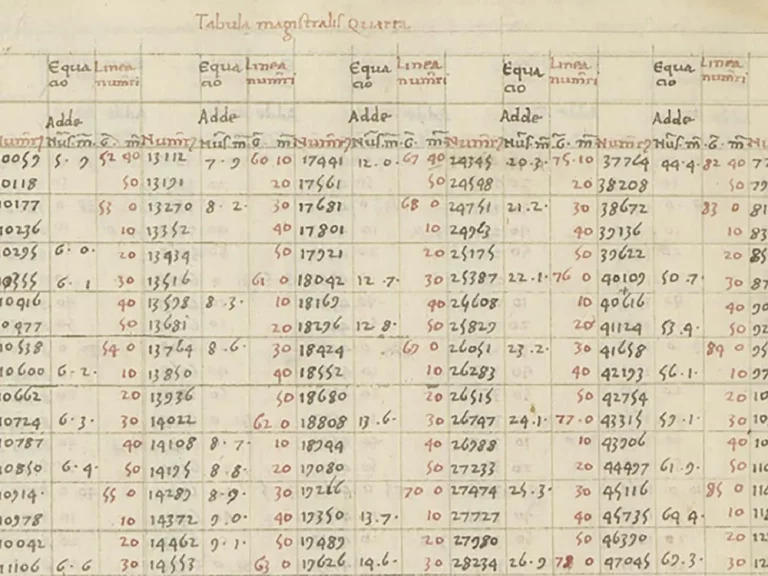 Tabula magistralis Quarta
Equa Linea Equa Linea Equa Linea Equa Linea Equa Linea
cio num̃ri cio num̃ri cio num̃ri cio num̃ri cio num̃ri
Adde Adde Adde Adde Adde
Nus. m̃. G̃. m̃ Num̃rꝯ Nus. m̃. G̃. m̃ Num̃rꝯ Nus. m̃. G̃. m̃ Num̃rꝯ Nus. m̃. G̃. m̃ Num̃rꝯ Nus. m̃. G̃. m̃ Nu
0059 5·9 52 40 13112 7·9 60 10 17441 12·0· 67 40 24345 20·3· 75·10 37764 44·4· 82 40 77
10118 50 13191 20 17561 50 24548 20 38208 50 79
10177 53 0 13270 8·2· 30 17681 68 0 24751 21·2· 30 38672 83 0 81
10236 10 13352 40 17801 10 24963 40 39136 10 83
10295 6·0· 20 13434 50 17921 20 25175 50 39622 20 85
10355 6·1 30 13516 61 0 18042 12·7· 30 25387 22·1· 76 0 40109 50·7· 30 87
10416 40 13598 8·3· 10 18169 40 25608 10 40616 40 90
10477 50 13681 20 18296 12·8· 50 25829 20 41124 53·4· 50 92
10538 54 0 13764 8·6· 30 18424 69 0 26051 23·2· 30 41658 84 0 95
10600 6·2· 10 13850 40 18552 10 26283 40 42193 56·1· 10 97
10662 20 13936 50 18680 20 26515 50 42754 20 10
10724 6·3· 30 14022 62 0 18808 13·6· 30 26747 24·1· 77·0 43315 59·1· 30 10
10787 40 14108 8·7· 10 18944 40 26988 10 43906 40 10
10850 6·4· 50 14195 8·8· 20 19080 50 27233 20 44497 61·9· 50 11
10914· 55 0 14284 8·9· 30 19216 70 0 27474 25·3· 30 45116 85 0 11
10978 10 14372 9·0· 40 19350 13·7· 10 27727 40 45735 64·4· 10 11
10042 20 14462 9·1· 50 19489 20 27980 50 46390 20 12
11106 6·6 30 14553 63 0 19626 14·6· 30 28234 26·9 78 0 47045 69·3· 30 12